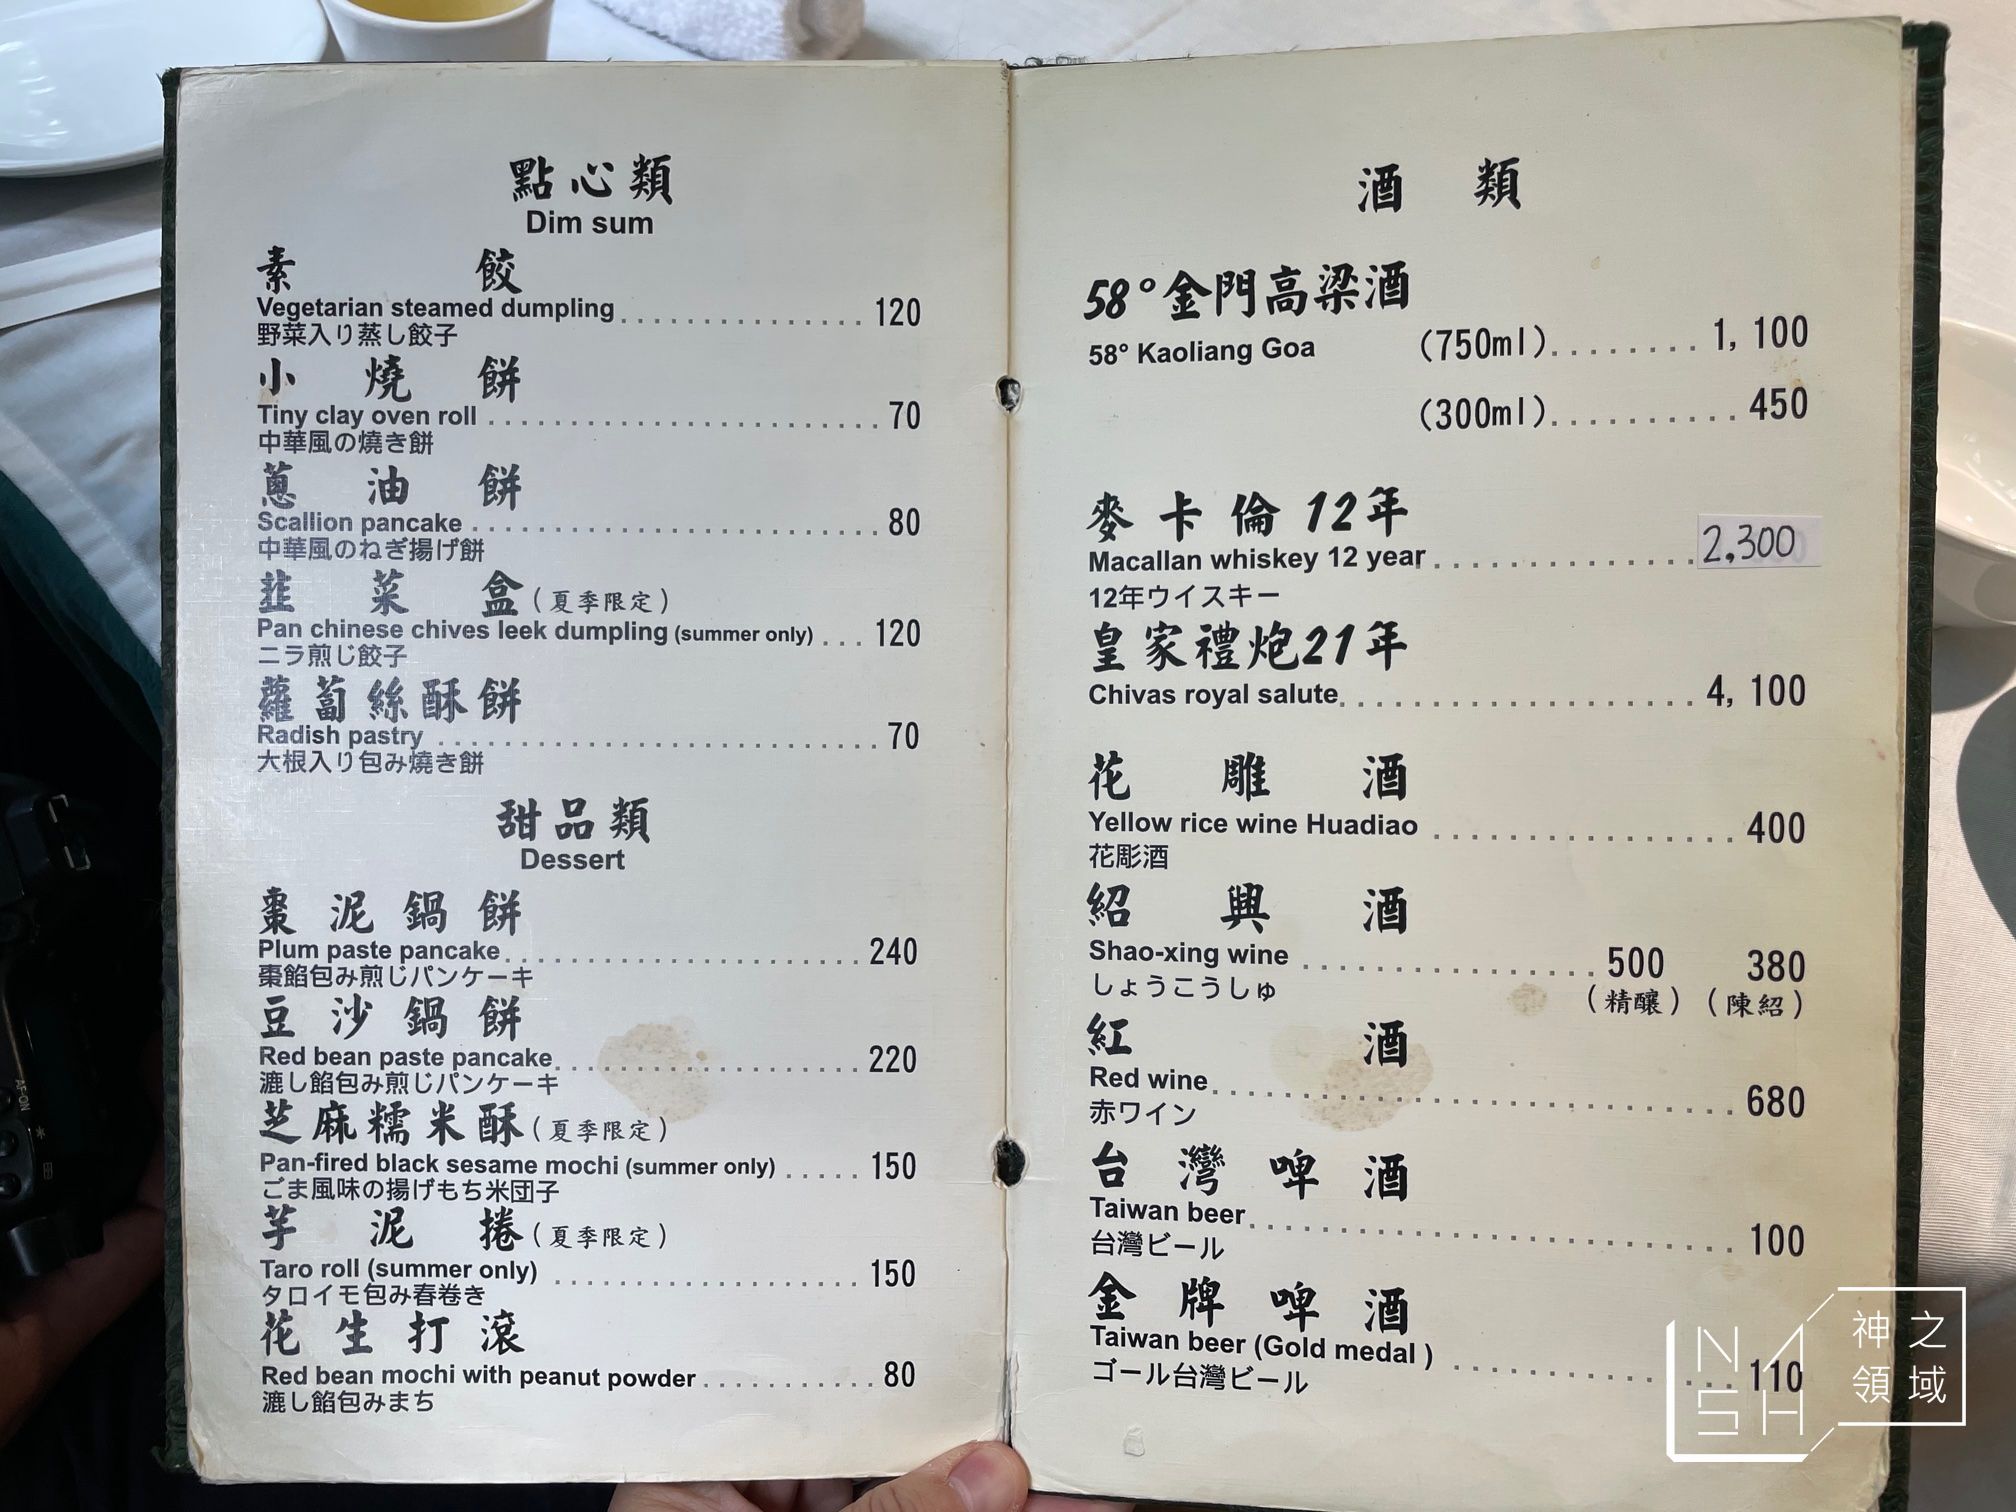 點心類
Dim sum
素餃
Vegetarian steamed dumpling 120
野菜入り蒸し餃子
小燒餅
Tiny clay oven roll 70
中華風の燒き餅
蔥油餅
Scallion pancake 80
中華風のねぎ揚げ餅
韮菜盒(夏季限定)
Pan chinese chives leek dumpling (summer only) 120
ニラ煎じ餃子
蘿蔔絲酥餅
Radish pastry 70
大根入り包み燒き餅
甜品類
Dessert
棗泥鍋餅
Plum paste pancake 240
棗餡包み煎じパンケーキ
豆沙鍋餅
Red bean paste pancake 220
漉し餡包み煎じパンケーキ
芝麻糯米酥(夏季限定)
Pan-fired black sesame mochi (summer only) 150
ごま風味の揚げもち米団子
芋泥捲(夏季限定)
Taro roll (summer only) 150
タロイモ包み春巻き
花生打滾
Red bean mochi with peanut powder 80
漉し餡包みまち
酒類
58°金門高梁酒
58° Kaoliang Goa (750ml) 1,100
(300ml) 450
麥卡倫12年
Macallan whiskey 12 year 2,300
12年ウイスキー
皇家禮炮21年
Chivas royal salute 4,100
花雕酒
Yellow rice wine Huadiao 400
花彫酒
紹興酒
Shao-xing wine 500 380
しょうこうしゅ (精釀) (陳紹)
紅酒
Red wine 680
赤ワイン
台灣啤酒
Taiwan beer 100
台灣ビール
金牌啤酒
Taiwan beer (Gold medal ) 110
ゴール台灣ビール
NASH
神之領域
AF-ON